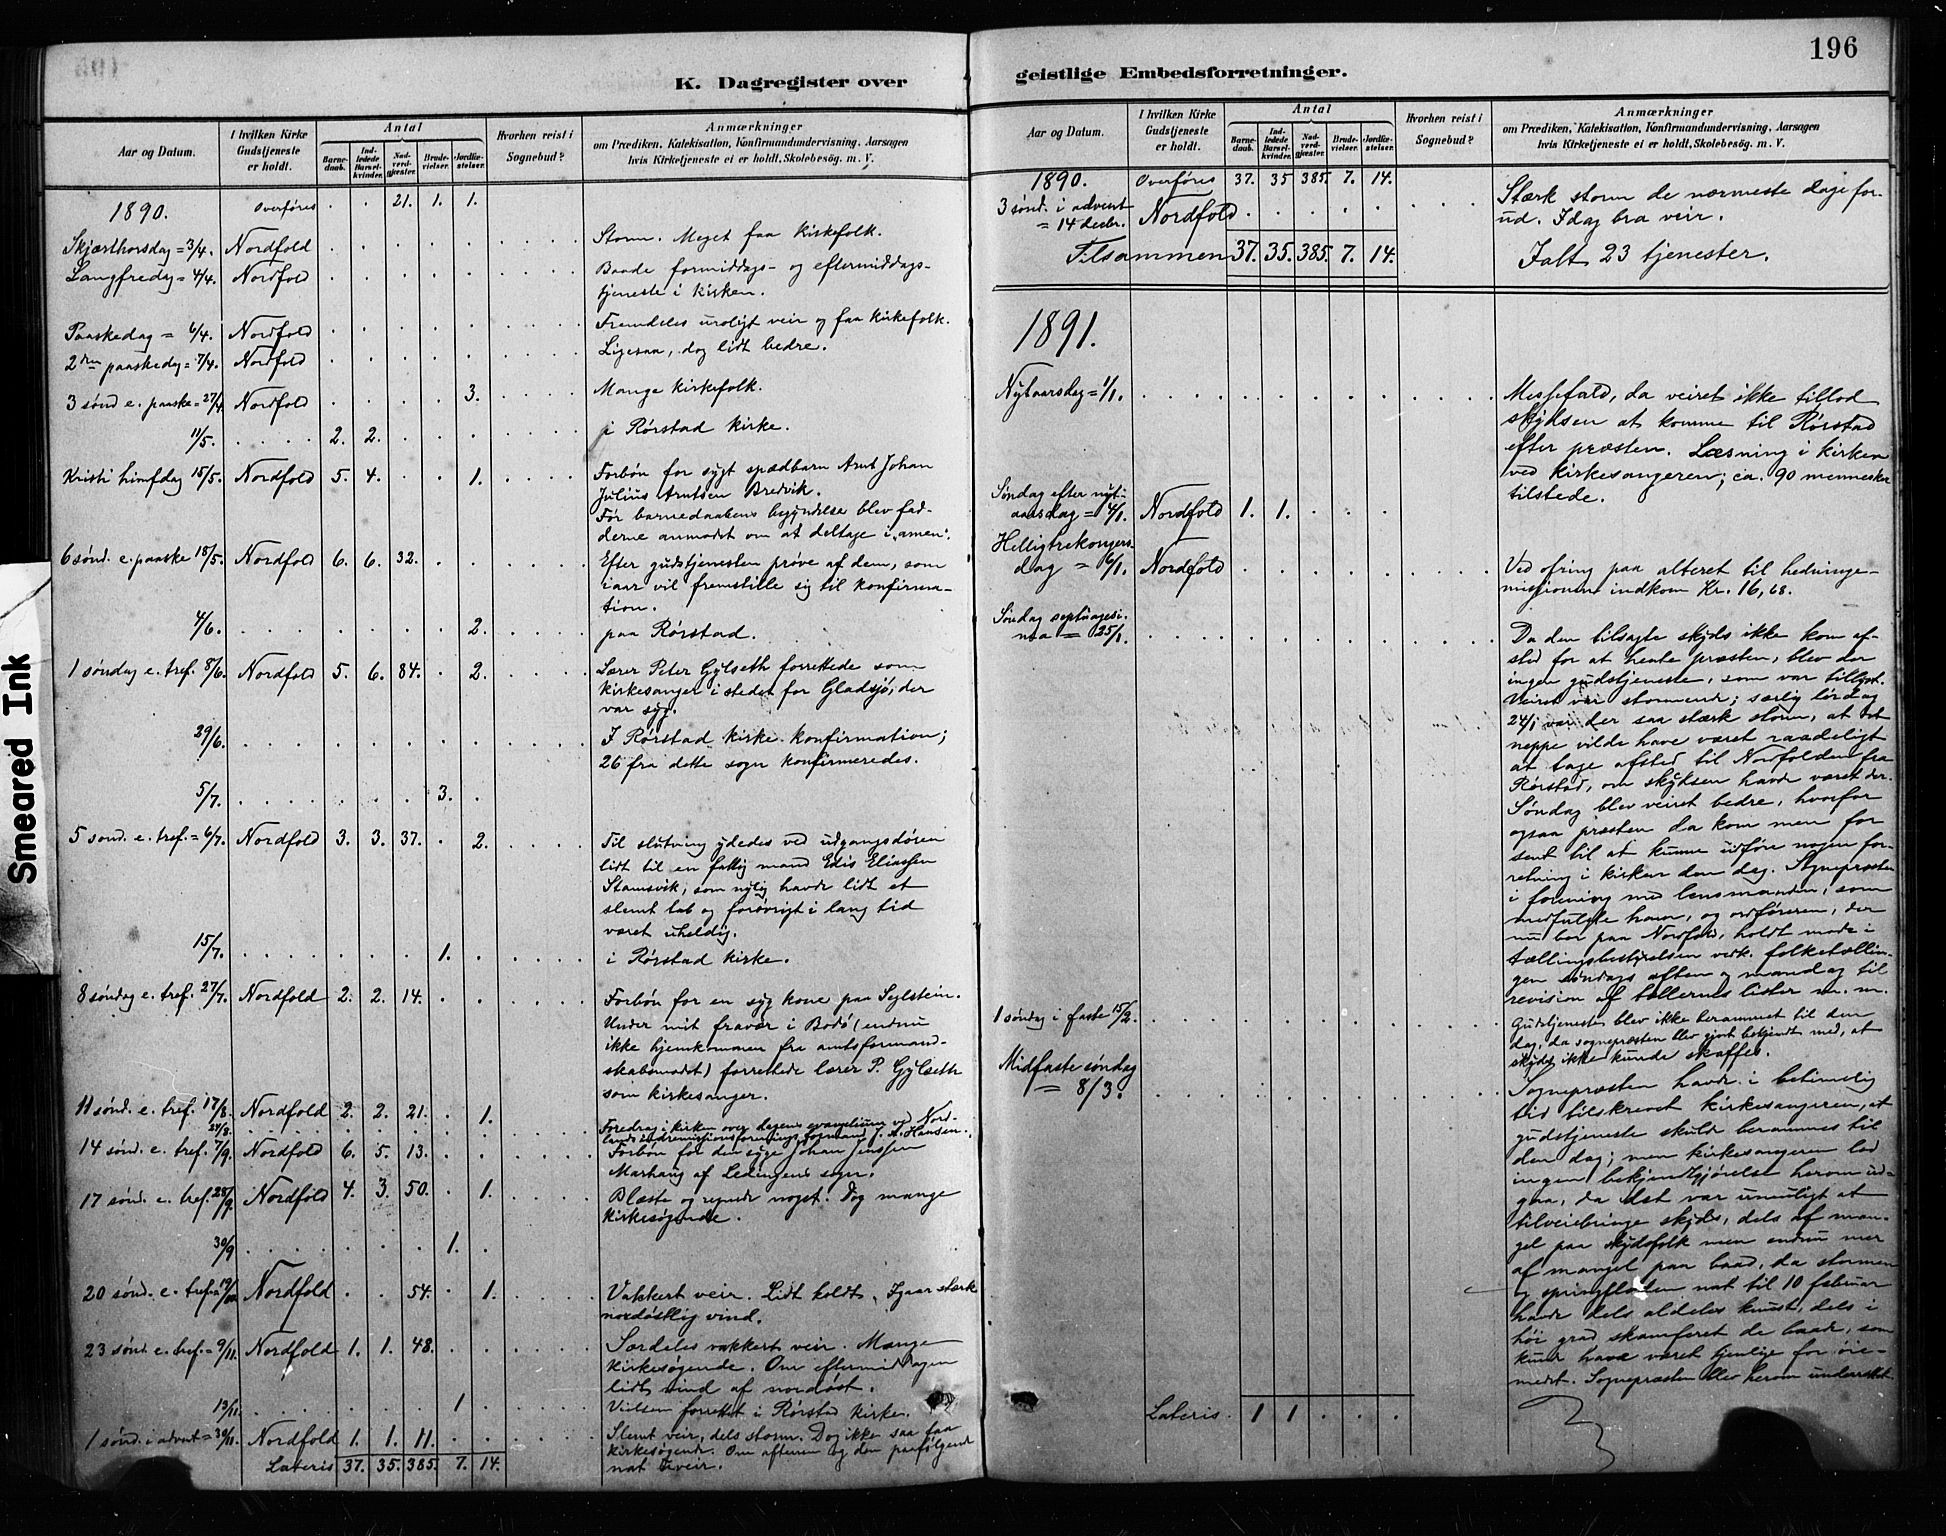 196
K. Dagregister over
Aar og Datum.
I hvilken Kirke Gudstjeneste er holdt.
Antal
Barne-daab.
Ind-ledede Barsel-kvinder.
Nad-verd-gjæster.
Brude-vielser.
Jordfæ-stelser.
Hvorhen reist i Sognebud?
Anmærkninger
om Prædiken, Katekisation, Konfirmandundervisning, Aarsagen
hvis Kirketjeneste ei er holdt, Skolebesøg. m. V.
1890. Overføres . . 21. 1. 1.
Skjærthorsdag = 3/4. Nordfold Storm. Meget faa kirkefolk.
Langfredag = 4/4. Nordfold Baade formiddags- og eftermiddags-
tjeneste i kirken.
Paaskedag = 6/4. Nordfold Fremdeles uroligt veir og faa kirkefolk.
2den paaskedag = 7/4. Nordfold Ligesaa, dog lidt bedre.
3 sønd e. paaske = 27/4. Nordfold 3. Mange kirkefolk.
11/5. 2. 2. i Rørstad kirke.
Kristi himfdag 15/5. Nordfold 5. 4. . . 1. Forbøn for sygt spædbarn Arnt Johan
Julius Arntsen Bredvik.
Før barnedaabens begyndelse blev fad-
derne anmodet om at deltage i „amen“.
6 sønd. e. paaske 18/5. Nordfold 6. 6. 32. Efter gudstjenesten prøve af dem, som
iaar vil fremstille sig til konfirma-
tion.
4/6. 2. paa Rørstad.
1 søndag e. tref. 8/6. Nordfold 5. 6. 84. . 2. Lærer Peter Gylseth forrettede som
kirkesanger i stedet for Gladsjø, der
var syg.
29/6. I Rørstad kirke konfirmation;
26 fra dette sogn konfirmeredes.
5/7. 3.
5 sønd. e. tref. = 6/7. Nordfold 3. 3. 37. . 2. Til slutning ydedes ved udgangsdøren
lidt til en fattig mand Edis Eliassen
Stamsvik, som nylig havde lidt et
slemt tab og forøvrigt i lang tid
været uheldig.
15/7. 1. i Rørstad kirke.
8 søndag e. tref. 27/7. Nordfold 2. 2. 14. Forbøn for en syg kone paa Seglstein.
Under mit fravær i Bodø (endnu
ikke hjemkommen fra amtsformand-
skabsmødet) forrettede lærer P. Gylseth
som kirkesanger.
11 sønd. e. tref. 17/8. Nordfold 2. 2. 21. . 1.
24/8. Foredrag i kirken over dagens evangelium ved Nord-
lands indremissionsforenings formand J. A. Hansen.
14 sønd. e. tref. 7/9. Nordfold 6. 5. 13. Forbøn for den syge Johan Jenssen
Marhaug af Lødingens sogn.
17 sønd. e. tref. 28/9. Nordfold 4. 3. 50. . 1. Blæste og regnede noget. Dog mange
kirkesøgende.
30/9 1.
20 sønd. e. tref. 19/10 Nordfold . . 54. . 1. Vakkert veir. Lidt koldt. Igaar stærk
nordøstlig vind.
23 sønd. e. tref. = 9/11. Nordfold 1. 1. 48. Særdeles vakkert veir. Mange
kirkesøgende. Om eftermiddagen
lidt vind af nordøst.
13/11. 1 Vielsen forrettet i Rørstad kirke.
1 sønd. i advent = 30/11. Nordfold 1. 1. 11. Slemt veir, dels storm. Dog ikke saa faa
kirkesøgende. Om aftenen og den paafølgende
nat uveir.
Lateris 37. 35. 385. 7. 14.
geistlige Embedsforretninger.
Aar og Datum.
I hvilken Kirke Gudstjeneste er holdt.
Antal
Barne-daab.
Ind-ledede Barsel-kvinder.
Nad-verd-gjæster.
Brude-vielser.
Jordfæ-stelser.
Hvorhen reist i Sognebud?
Anmærkninger
om Prædiken, Katekisation, Konfirmandundervisning, Aarsagen
hvis Kirketjeneste ei er holdt, Skolebesøg. m. V.
1890. Overføres 37. 35 385. 7. 14.
3 sønd. i advent
= 14 decbr. Nordfold Stærk storm de nærmeste dage for-
ud. Idag bra veir.
Tilsammen 37. 35. 385. 7. 14. Ialt 23 tjenester.
1891.
Nytaarsdag = 1/1. Messefald, da veiret ikke tillod
skydsen at komme til Rørstad
efter præsten. Læsning i kirken
ved kirkesangeren; ca. 90 mennesker
tilstede.
Søndag efter nyt-
aarsdag = 4/1. Nordfold 1. 1.
Helligtrekongers-
dag = 6/1. Nordfold Ved ofring paa alteret til hedninge-
missionen indkom Kr. 16,68.
Søndag septuagesi-
ma = 25/1. Da den tilsagte skyds ikke kom af-
sted for at hente præsten, blev der
ingen gudstjeneste, som var tillyst.
Veiret var stormende; særlig lørdag
24/1 var der saa stærk storm, at det
neppe vilde have været raadeligt
at tage afsted til Nordfolden fra
Rørstad, om skydsen havde været der.
Søndag blev veiret bedre, hvorfor
ogsaa præsten da kom men for
sent til at kunne udføre nogen for-
retning i kirken den dag. Sognepræsten
i forening med lensmanden, som
medfulgte ham, og ordføreren, der
nu bor paa Nordfold, holdt møde i
tællingsbestyrelsen vedk. folketællin-
gen søndags aften og mandag til
revision af tællernes lister m. m.
1 søndag i faste 15/2. Gudstjeneste blev ikke berammet til den
dag, da sognepræsten blev gjort bekjendt med, at
skyds ikke kunde skaffes.
Midfaste søndag
= 8/3. Sognepræsten havde i betimelig
tid tilskrevet kirkesangeren, at
gudstjeneste skulde berammes til
den dag; men kirkesangeren lod
ingen bekjendtgjørelse herom ud-
gaa, da det var umuligt at
tilveiebringe skyds, dels af man-
gel paa skydsfolk men endnu mer
af mangel paa baad, da stormen
og springfloden nat til 10 februar
havde dels aldeles knust, dels i
høi grad skamferet de baade, som
kunde have været tjenlige for øie-
medet. Sognepræsten blev herom underrettet
Lateris. 1 1 . . .
Smeared Ink